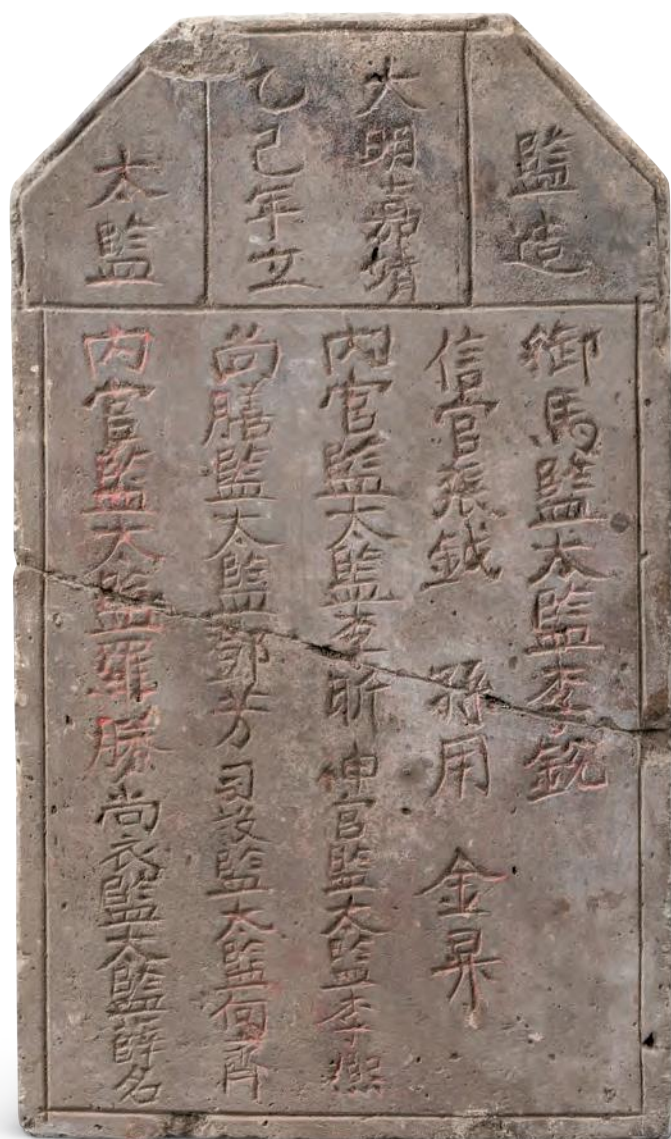 監造
大明嘉靖
乙巳年立
太監
御馬監太監李銳
信官張鉞 孫用 金昇
內官監太監李昕 神宮監太監李熙
尚膳監太監鄧芳 司設監太監何齊
內官監太監羅勝 尚衣監太監薛名